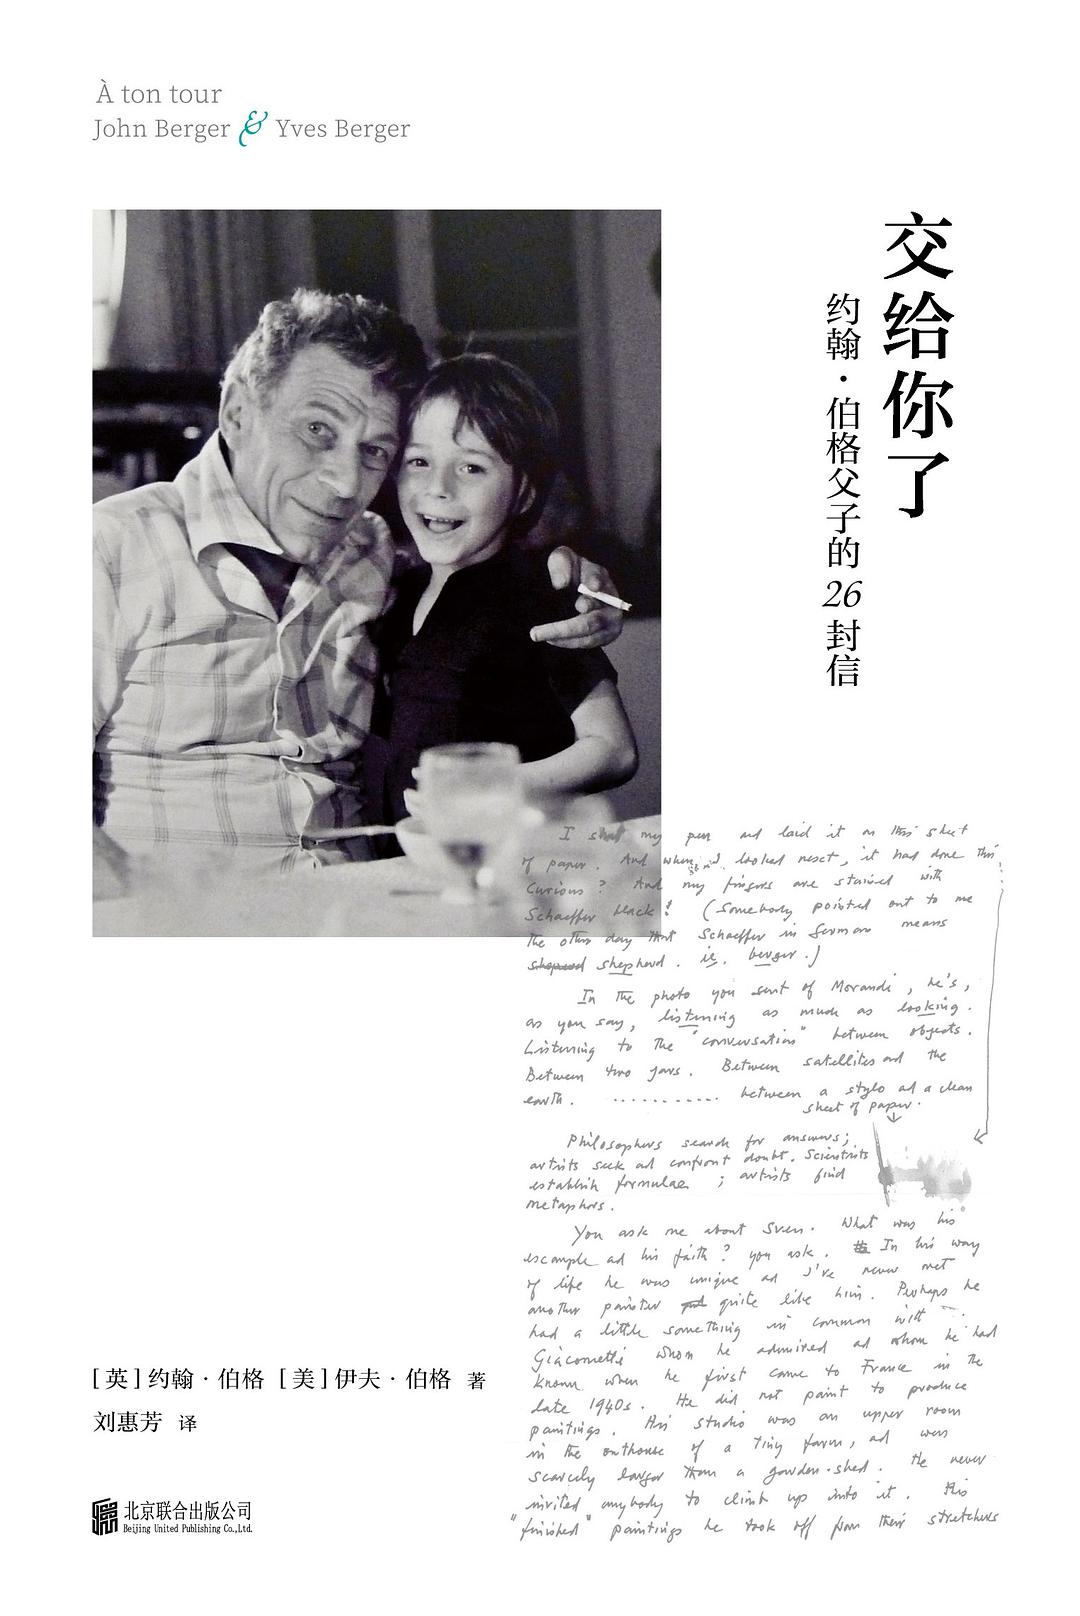 À ton tour
John Berger & Yves Berger
交给你了
约翰·伯格父子的26封信
I shut my pen and laid it on this sheet
of paper. And when I looked next, it had done this.
Curious? And my fingers are stained with
Schaeffer black! (Somebody pointed out to me
the other day that Schaeffer in German means
shepherd. ie. berger.)
In the photo you sent of Morandi, he's,
as you say, listening as much as looking.
Listening to the "conversation" between objects.
Between two jars. Between satellites and the
earth. ........... between a stylo and a clean
sheet of paper.
Philosophers search for answers;
artists seek and confront doubt. Scientists
establish formulae ; artists find
metaphors.
You ask me about Sven. What was his
example and his faith? you ask. In his way
of life he was unique and I've never met
another painter quite like him. Perhaps he
had a little something in common with
Giacometti whom he admired and whom he had
known when he first came to France in the
late 1940s. He did not paint to produce
paintings. His studio was an upper room
in the outhouse of a tiny farm, and was
scarcely larger than a garden-shed. He never
invited anybody to climb up into it. His
"finished" paintings he took off from their stretchers
[英]约翰·伯格 [美]伊夫·伯格 著
刘惠芳 译
北京联合出版公司
Beijing United Publishing Co.,Ltd.